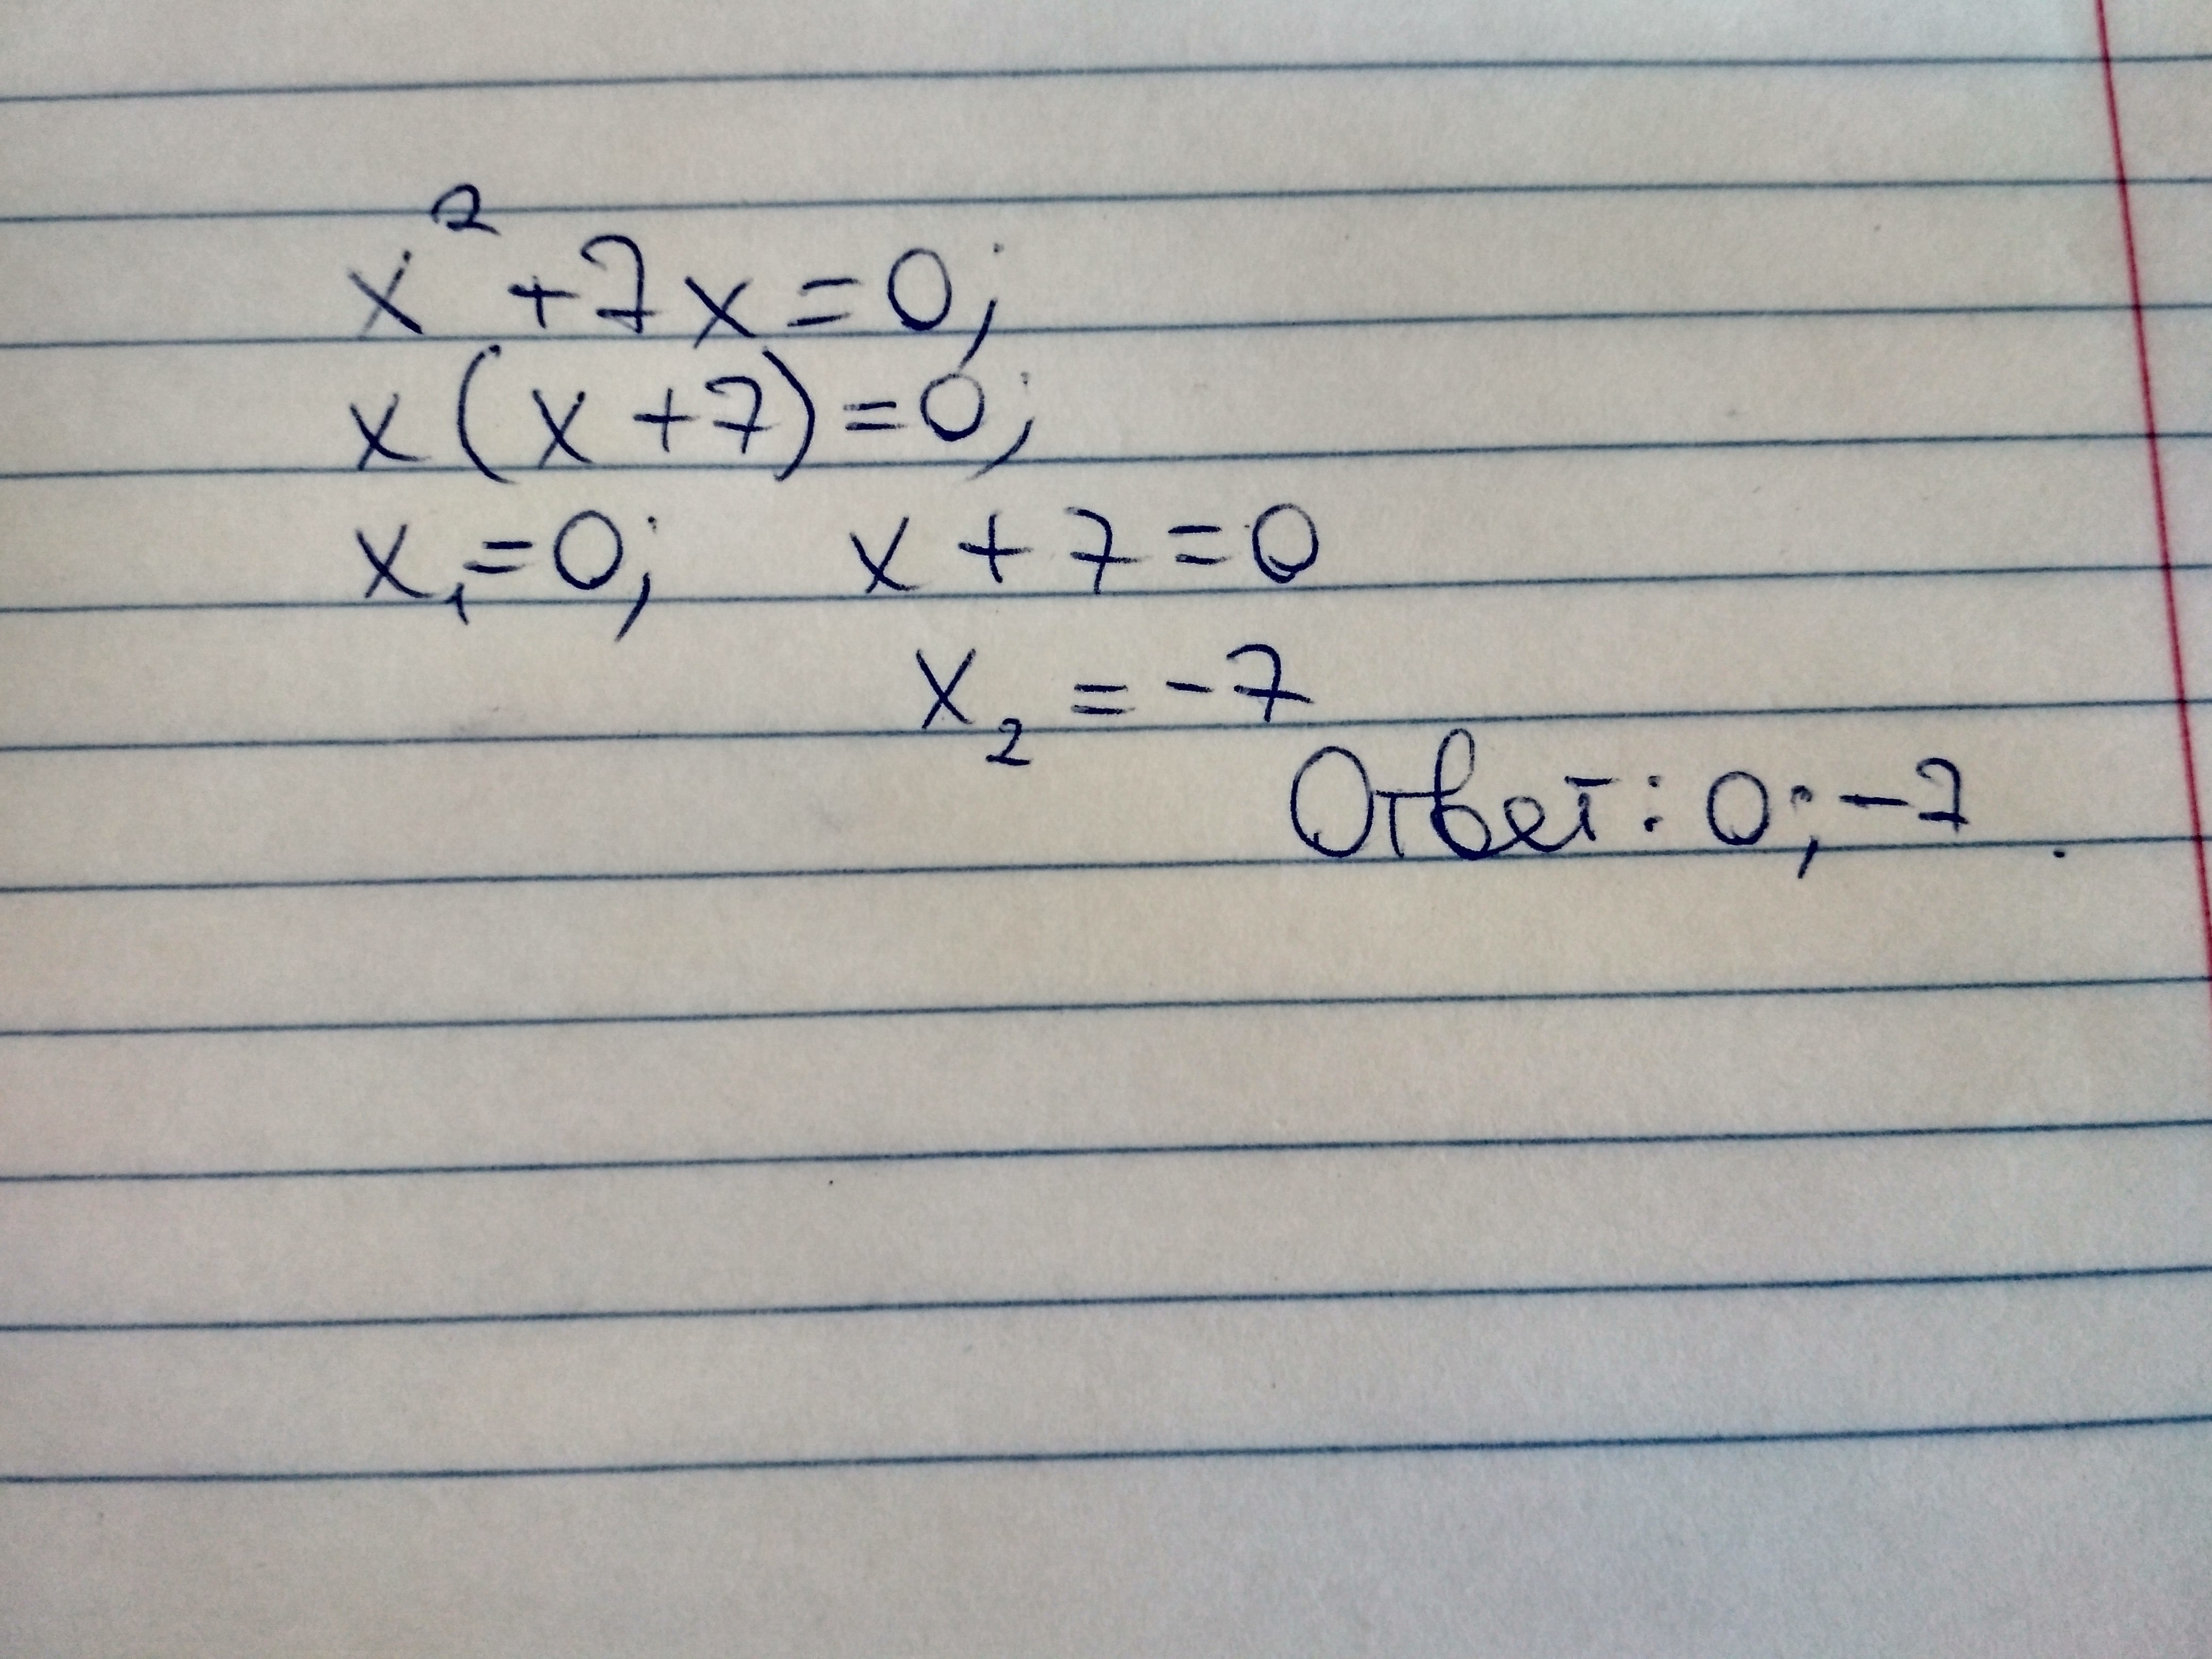 x² + 7x = 0;
x(x + 7) = 0;
x₁ = 0; x + 7 = 0
x₂ = -7
Ответ: 0; -7.